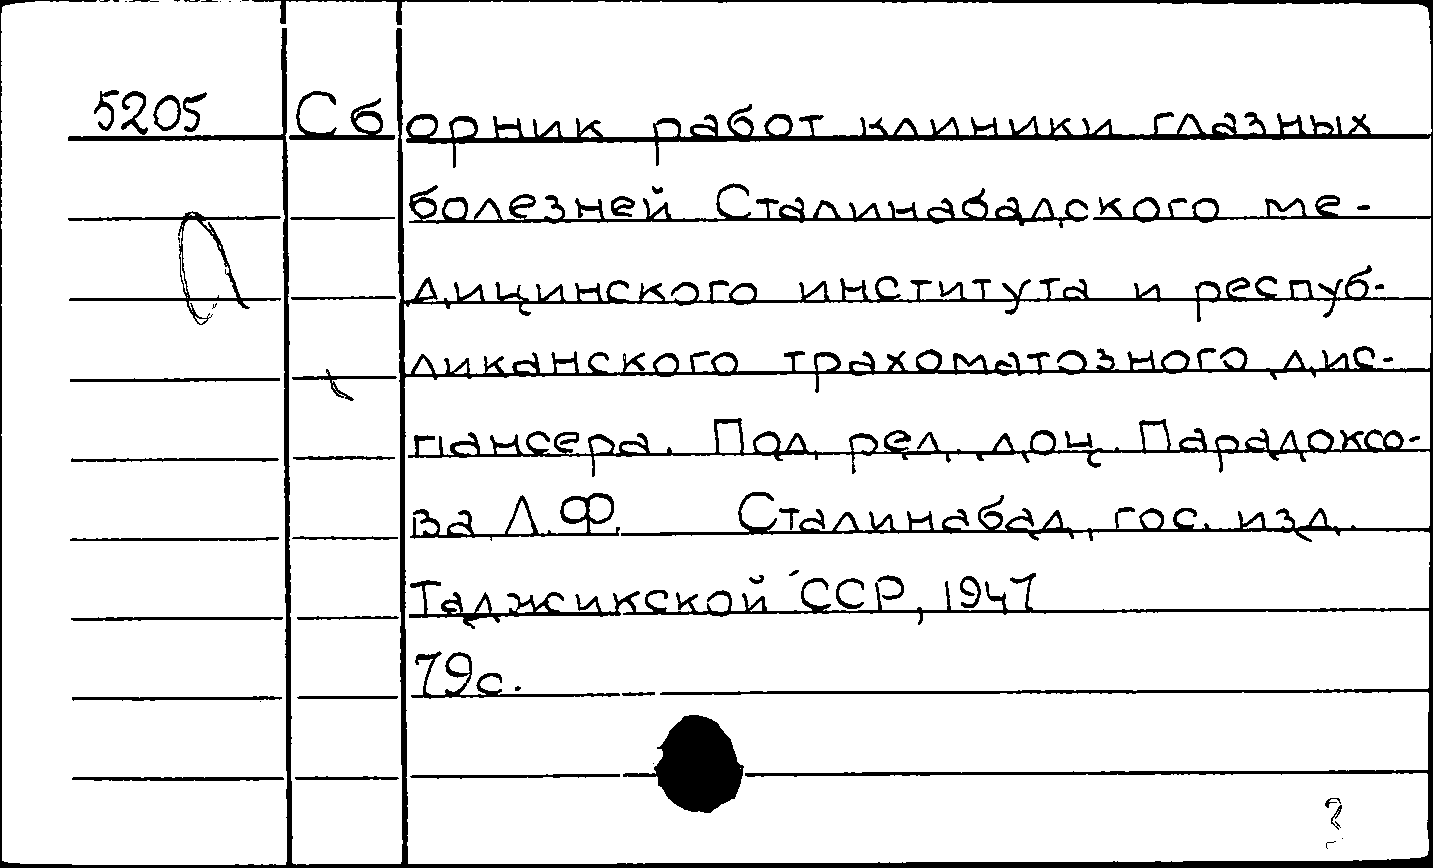 5205 Сборник работ клиники глазных
болезней Сталинабадского ме-
дицинского института и респуб-
ликанского трахоматозного дис-
пансера. Под ред. доц. Парадоксо-
ва Л.Ф. Сталинабад, гос. изд.
Таджикской ССР, 1947
79с.
?